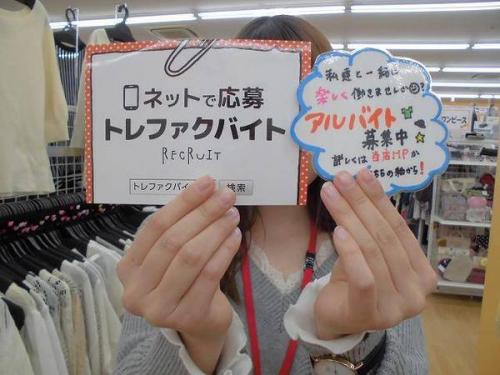 ネットで応募
トレファクバイト
RECRUIT
トレファクバイ
検索
私達と一緒に
楽しく働きませんか?
アルバイト
募集中
詳しくは当店HPか
ちらの紙から!
ワンピース